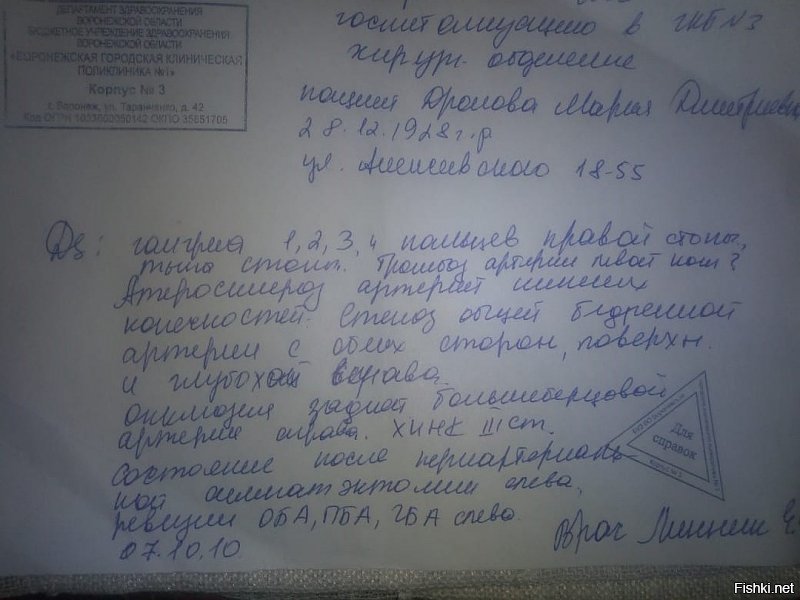 ДЕПАРТАМЕНТ ЗДРАВООХРАНЕНИЯ
ВОРОНЕЖСКОЙ ОБЛАСТИ
БЮДЖЕТНОЕ УЧРЕЖДЕНИЕ ЗДРАВООХРАНЕНИЯ
ВОРОНЕЖСКОЙ ОБЛАСТИ
«ВОРОНЕЖСКАЯ ГОРОДСКАЯ КЛИНИЧЕСКАЯ
ПОЛИКЛИНИКА №1»
Корпус № 3
г. Воронеж, ул. Тараненко, д. 42
Код ОГРН ОКПО 35651705
госпитализацию в ГКБ №3
хирург. отделение
пациент Мария Дмитриевна
28.12.1928 г.р
ул. 18-55
Ds: гангрена 1, 2, 3, 4 пальцев правой стопы,
тыла стопы. Тромбоз артерий левой ?
Атеросклероз артерий нижних
конечностей. Стеноз общей бедренной
артерии с обеих сторон, поверхн.
и глубокой справа.
окклюзия задней большеберцовой
артерии справа. ХИНК III ст.
состояние после периартериаль-
ной симпатэктомии слева,
ревизии ОБА, ПБА, ГБА слева.
07.10.10
Врач
Для
справок
Fishki.net